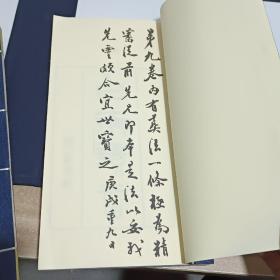 第九卷内有葬法一條極為精
審從前先兄即本是法以妥我
先靈頗合宜世寶之庚戌重九日